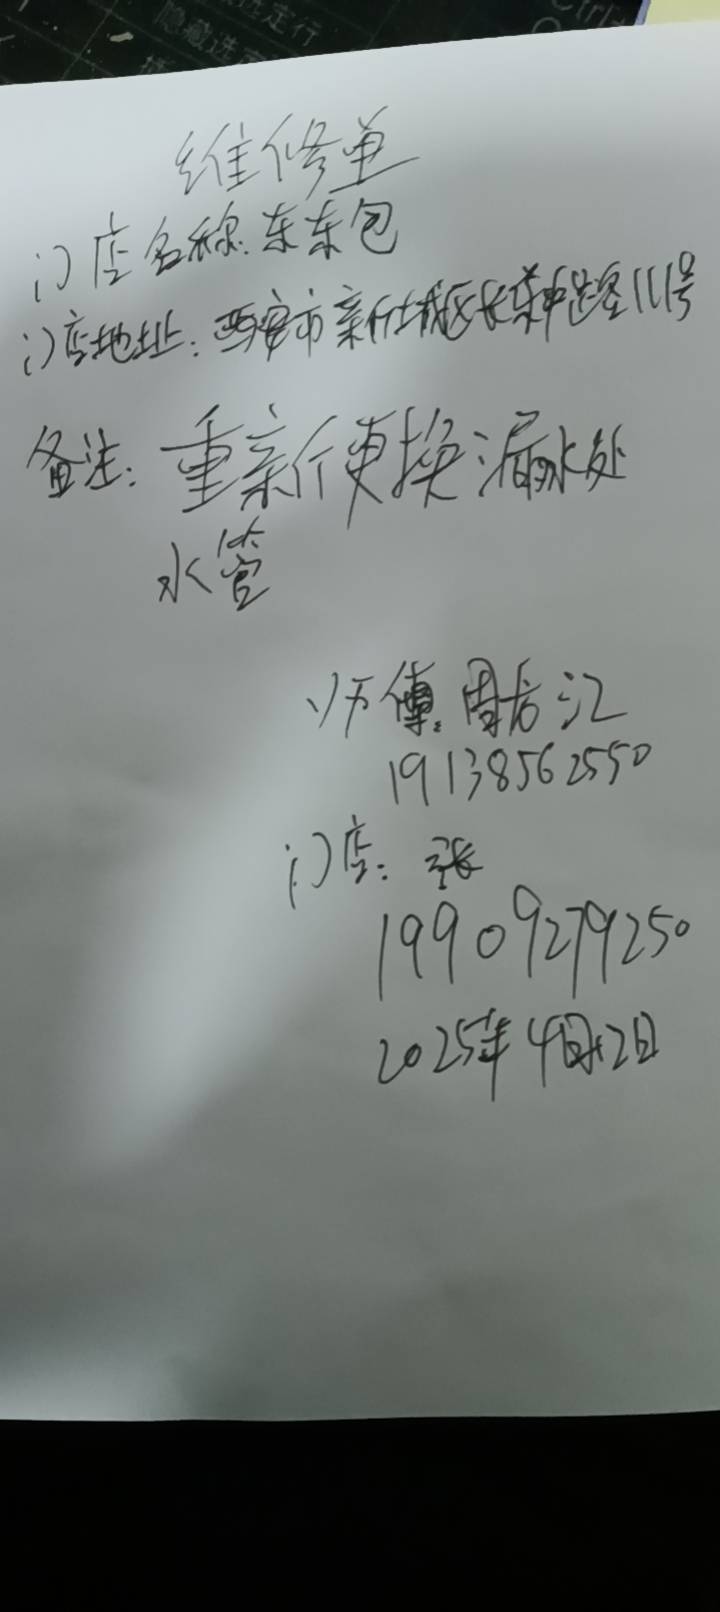 隐藏选定行
Ctrl
维修单
门店名称:东东包
门店地址:西安市新城区长乐中路111号
备注:重新更换漏水处
水管
师傅:周方江
19138562550
门店:张
19909279250
2025年4月2日